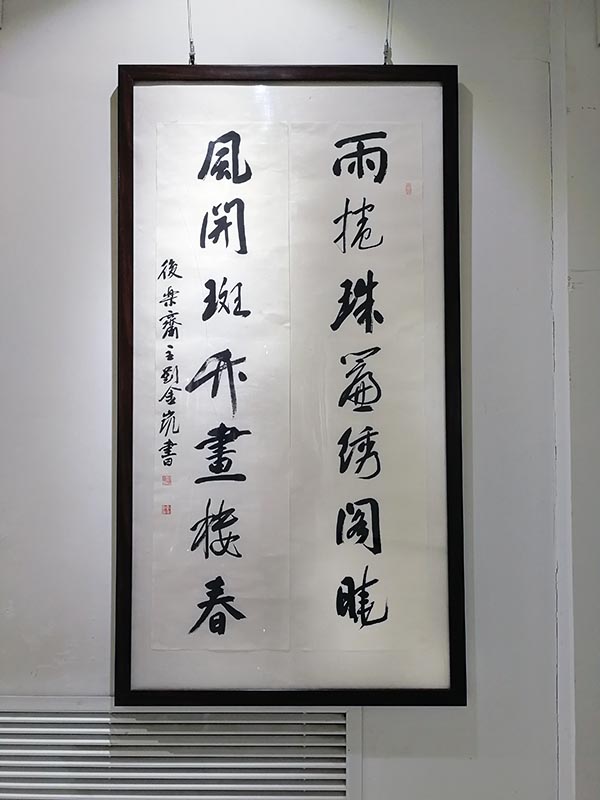 雨捲珠簾绣阁曉
風開斑竹畫楼春
後樂齋主劉金凯書